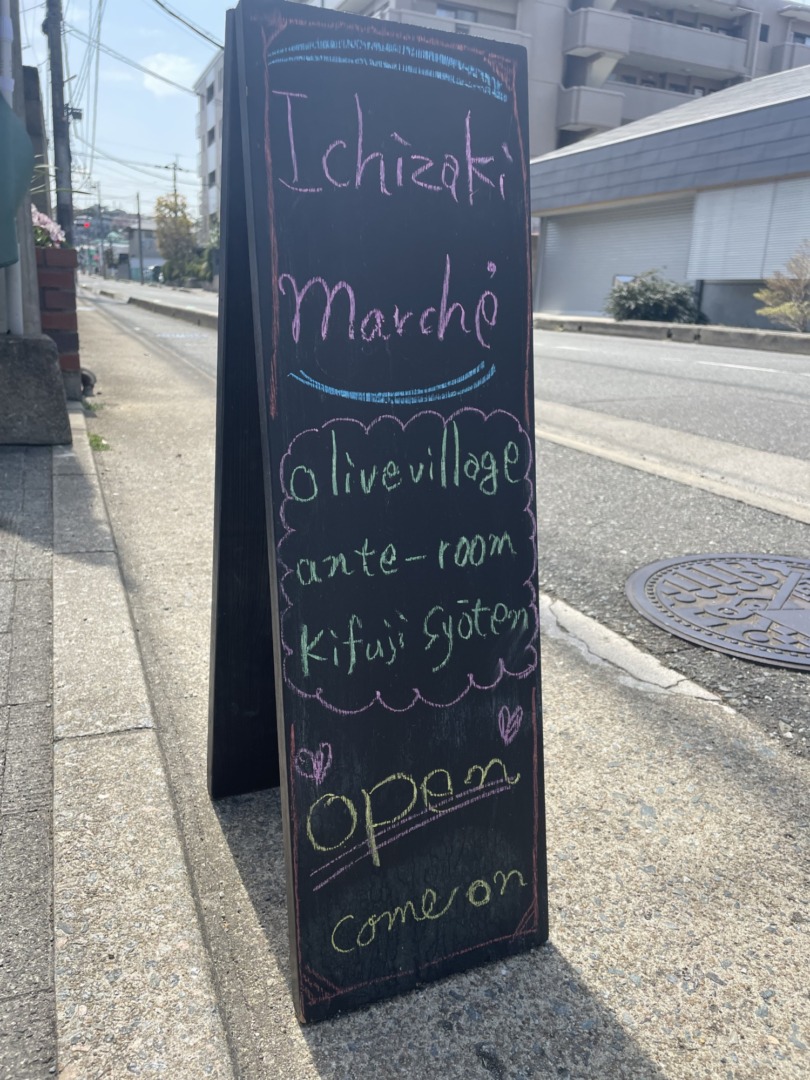 Ichizaki
Marché
olivevillage
ante-room
kifuji Gyōten
open
come on